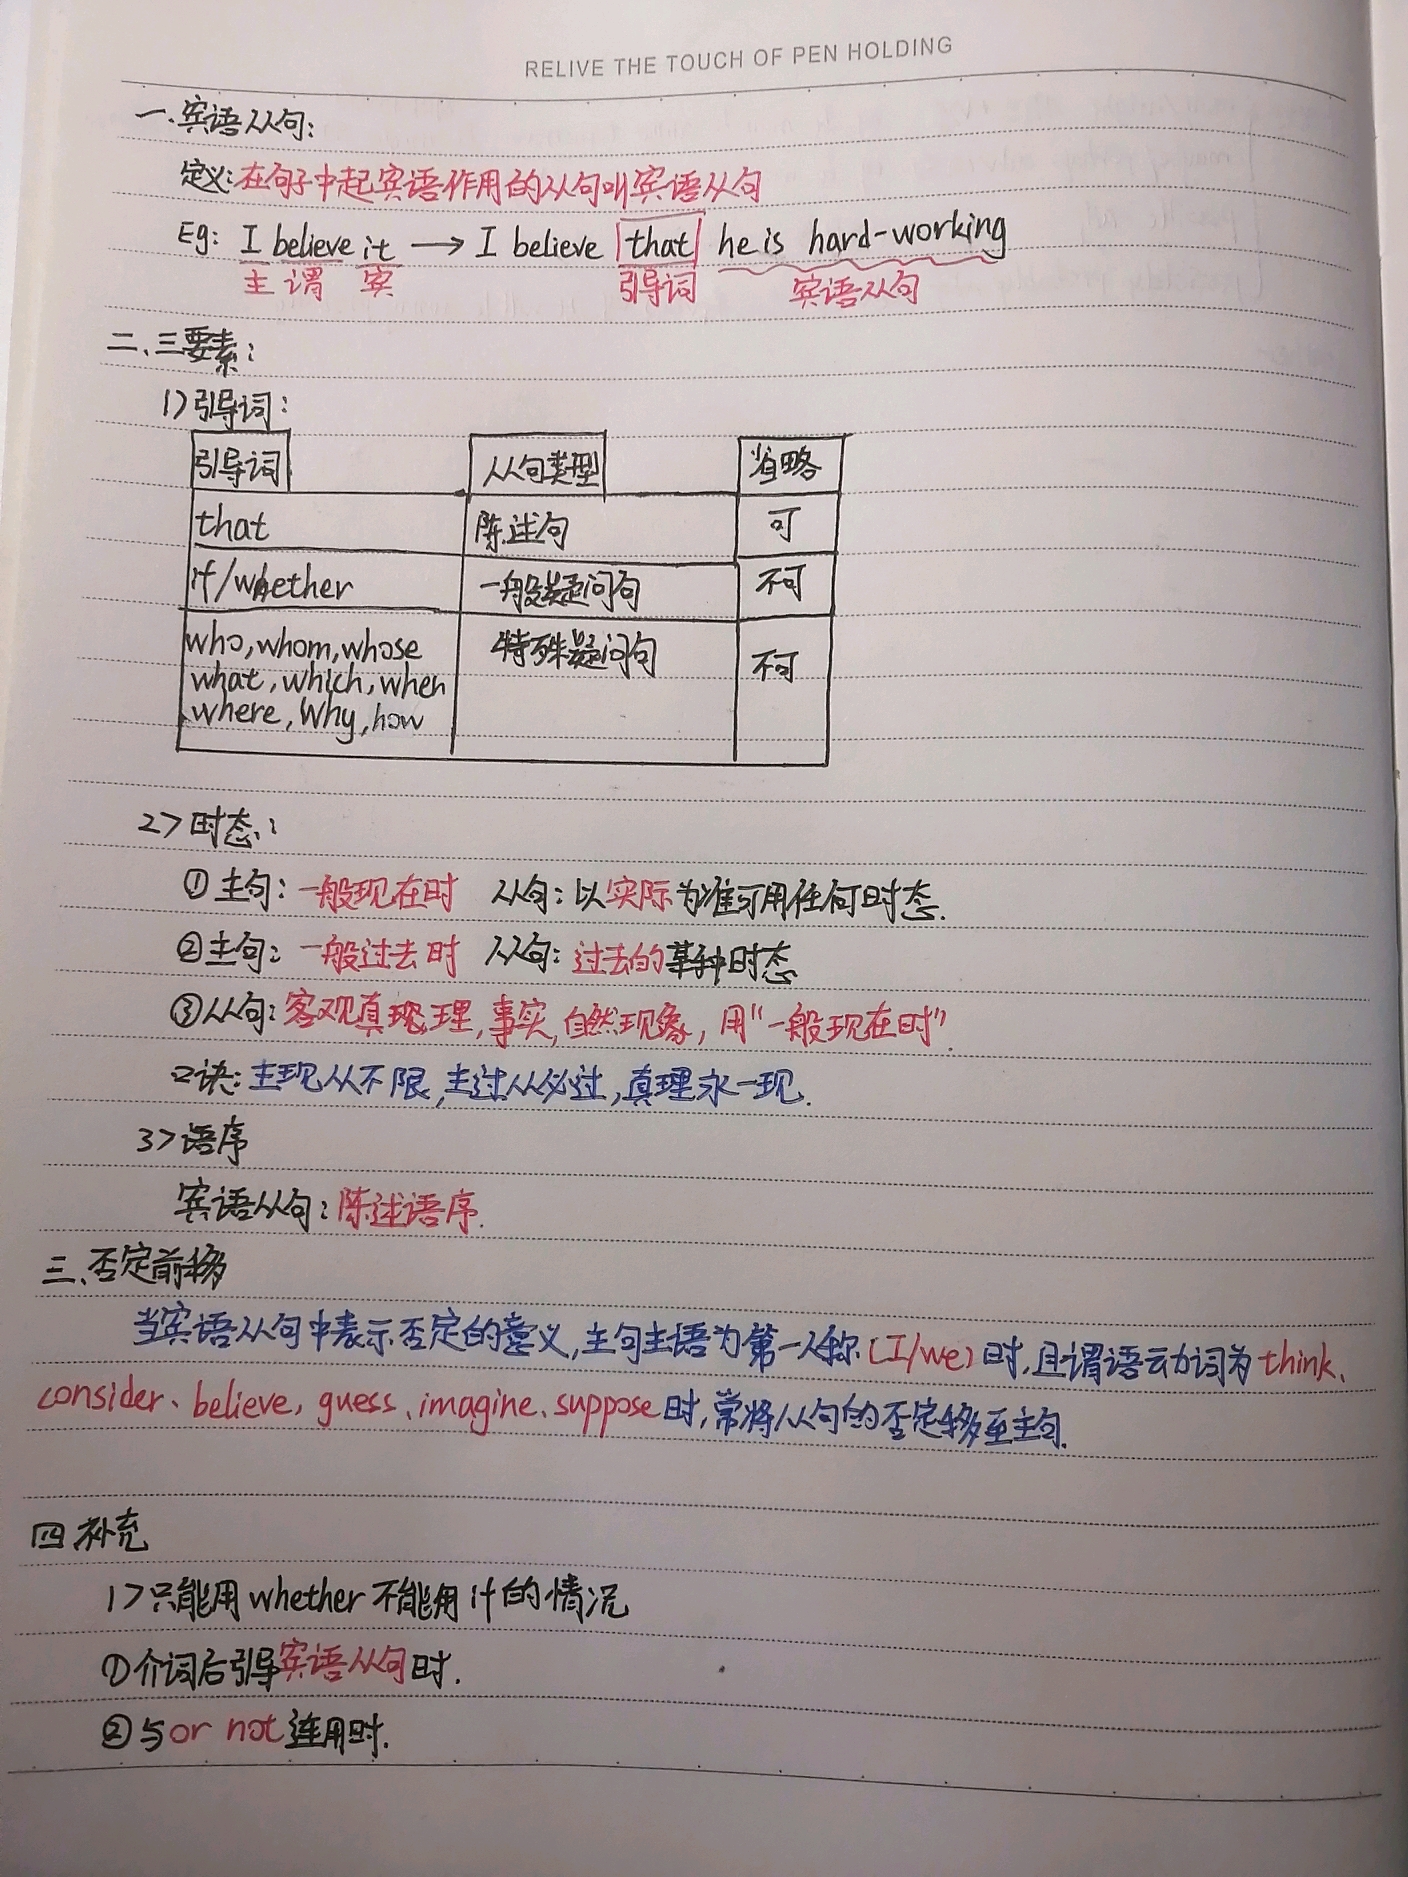 RELIVE THE TOUCH OF PEN HOLDING
一.宾语从句:
定义:在句子中起宾语作用的从句叫宾语从句
Eg: I believe it → I believe that he is hard-working
主 谓 宾 引导词 宾语从句
二、三要素:
1>引导词:
引导词 从句类型 省略
that 陈述句 可
if/whether 一般疑问句 不可
who,whom,whose 特殊疑问句 不可
what,which,when
where,why,how
2>时态:
①主句:一般现在时 从句:以实际为准可用任何时态.
②主句:一般过去时 从句:过去的某种时态
③从句:客观真理,事实,自然现象,用"一般现在时".
口诀:主现从不限,主过从必过,真理永一现.
3>语序
宾语从句:陈述语序.
三、否定前移
当宾语从句中表示否定的意义,主句主语为第一人称(I/we)时,且谓语动词为think、
consider、believe, guess、imagine、suppose时,常将从句的否定移至主句.
四 补充
1>只能用whether不能用if的情况
①介词后引导宾语从句时.
②与or not连用时.